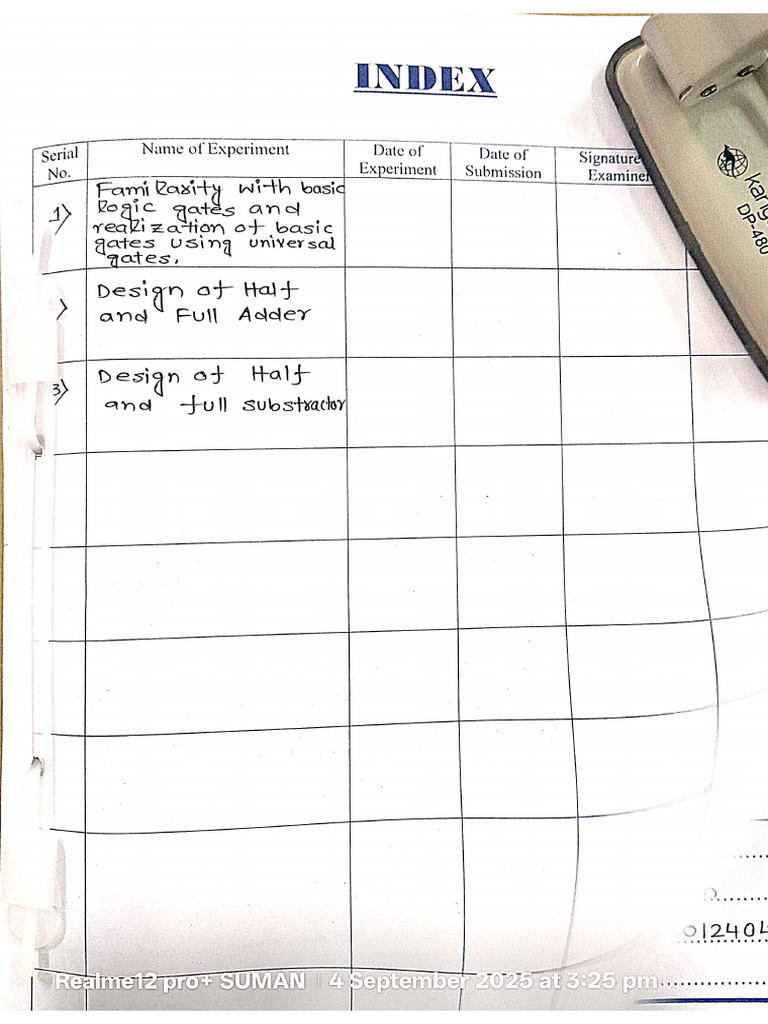 INDEX
Serial No.
Name of Experiment
Date of Experiment
Date of Submission
Signature
Examine
1)
Familiarity with basic
logic gates and
realization of basic
gates using universal
gates.
)
Design of Half
and Full Adder
3)
Design of Half
and full substractor
kang
DP-480
01240
Realme12 pro+ SUMAN | 4 September 2025 at 3:25 pm